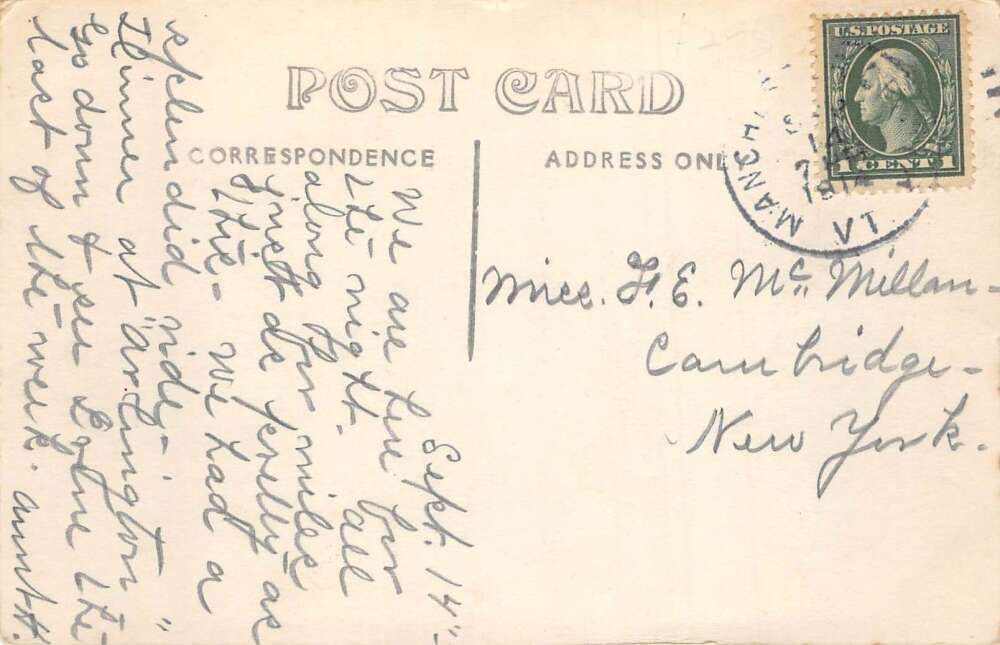 POST CARD
CORRESPONDENCE
ADDRESS ONL
U.S. POSTAGE
1 CENT 1
MANCH
VT
Sept. 14"-
We are here for
the night. all
along for miles
just as pretty as
this - We had a
splendid ride -
Dinner at "Arlington"
go down & see Lyme the
last of the week. Aunt H.
Miss. F. E. McMillan -
Cambridge -
New York.